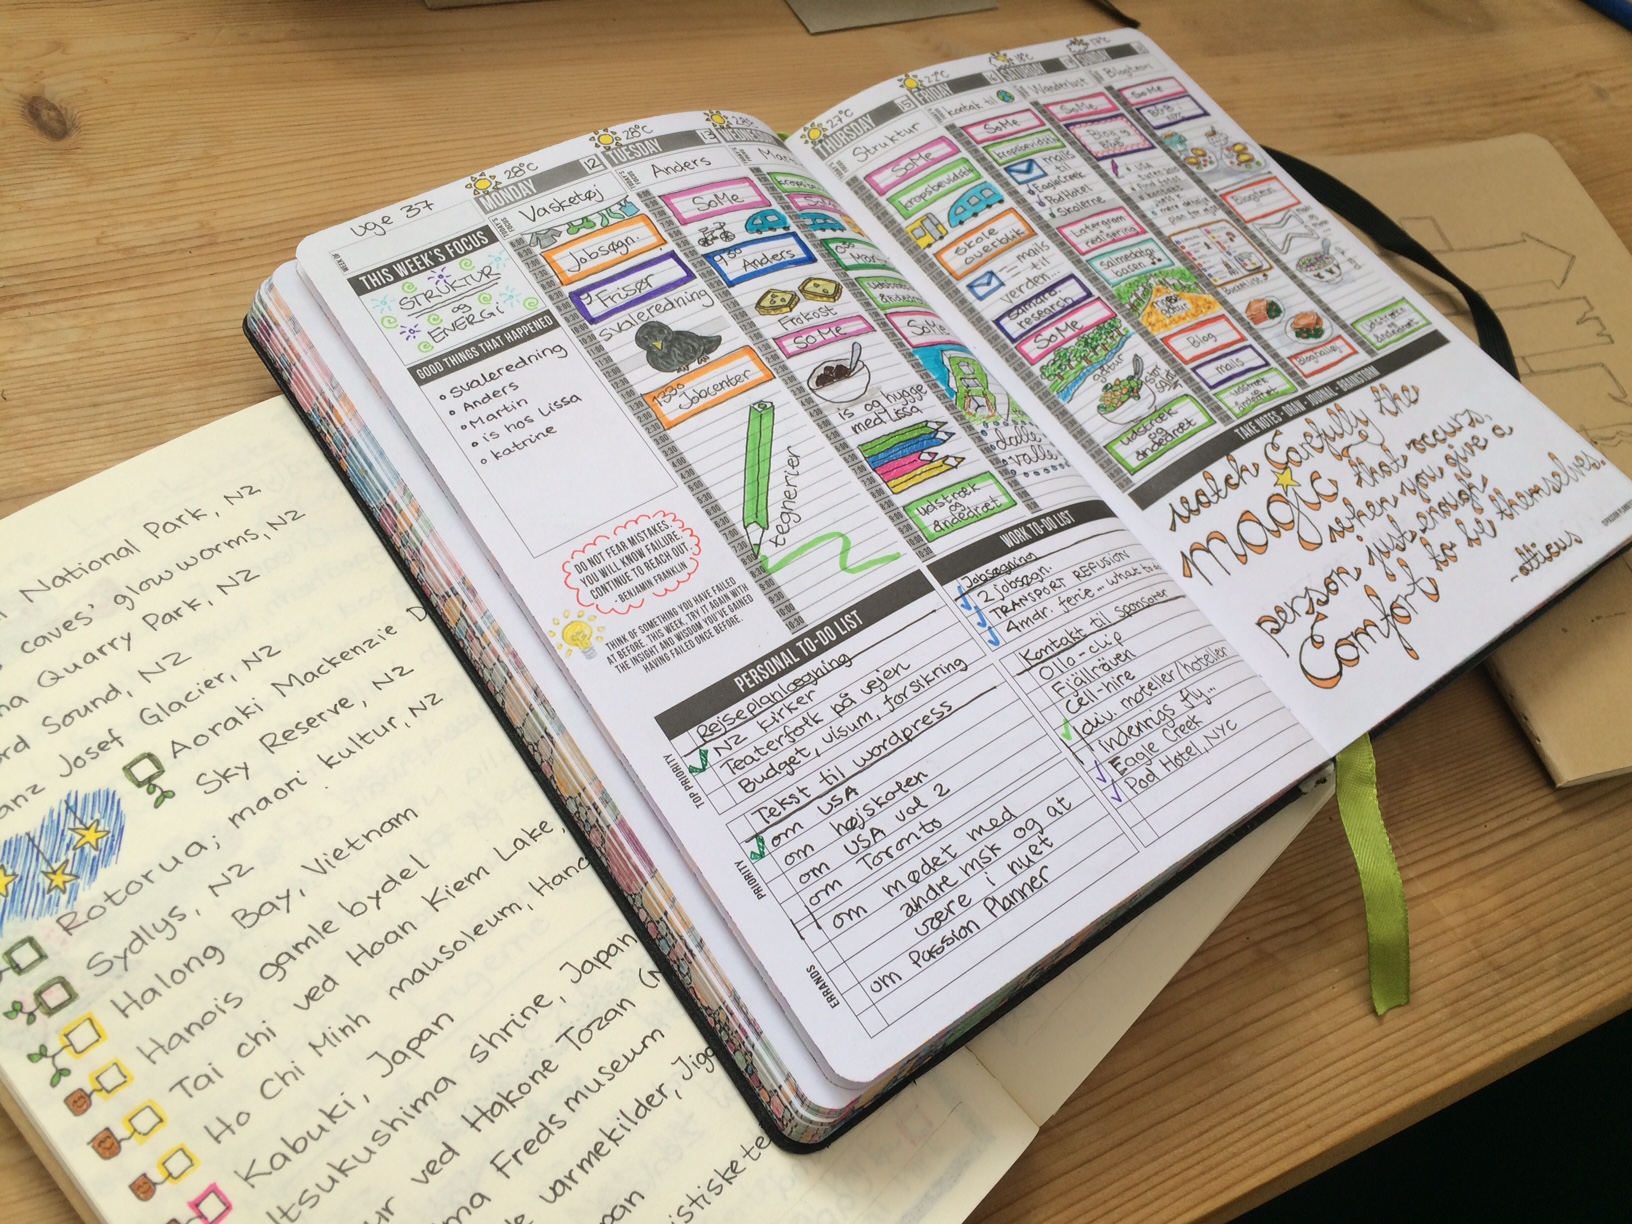 uge 37
WEEK OF
THIS WEEK'S FOCUS
STRUKTUR
og
ENERGi
GOOD THINGS THAT HAPPENED
• Svaleredning
• Anders
• Martin
• is hos Lissa
• Katrine
DO NOT FEAR MISTAKES.
YOU WILL KNOW FAILURE.
CONTINUE TO REACH OUT.
- BENJAMIN FRANKLIN
THINK OF SOMETHING YOU HAVE FAILED
AT BEFORE. THIS WEEK, TRY IT AGAIN WITH
THE INSIGHT AND WISDOM YOU'VE GAINED
HAVING FAILED ONCE BEFORE.
28°C
MONDAY 12
Vasketøj
Jobsøgn.
9 Frisør
Svaleredning
13:30
Jobcenter
28°C
TUESDAY 13
Anders
SoMe
9:30
Anders
Frokost
SoMe
tegnerier
WEDNESDAY
is og hygge
med Lissa
udstræk
og
åndedræt
27°C
THURSDAY 15
Struktur
SoMe
kropsbevidsth
Skole
overblik
= mails
til
verden...
research
SoMe
22°C
FRIDAY 16
kontakt til
SoMe
kropsbevidsth
mails
til
Eagle Creek
Pod Hotel
Skolerne
gåtur
udstræk
og
åndedræt
18°C
SATURDAY
Wanderlust
SoMe
Blog og
B&B
Latergram
redigering
gåtur
Blog
mails
udstræk
og
åndedræt
17°C
SUNDAY
Blogteori
SoMe
B&B
Blogteori
Bucketlist
udstræk
og
åndedræt
PERSONAL TO-DO LIST
TOP PRIORITY
Rejseplanlægning
NZ kirker
Teaterfolk på vejen
Budget, visum, forsikring
Tekst til wordpress
PRIORITY
om USA
om højskolen
om USA vol 2
om Toronto
om mødet med
andre msk og at
være i nuet
ERRANDS
om Passion Planner
WORK TO-DO LIST
Jobsøgning
2 jobsøgn.
TRANSPORT REFUSION
4mdr. ferie... what to do
Kontakt til sponsorer
Olla-clip
Fjällräven
Cell-hire
div. moteller/hoteller
indenrigs fly...
Eagle Creek
Pod Hotel, NYC
TAKE NOTES - DRAW - JOURNAL - BRAINSTORM
watch carefully the
magic that occurs,
when you give a
person just enough
comfort to be themselves.
-atticus
National Park, NZ
caves' glowworms, NZ
Quarry Park, NZ
Sound, NZ
Josef Glacier, NZ
Aoraki Mackenzie D
Sky Reserve, NZ
Rotorua; maori kultur, NZ
Sydlys, NZ
Halong Bay, Vietnam
Hanois gamle bydel
Tai chi ved Hoan Kiem Lake,
Ho Chi Minh mausoleum, Hano
Kabuki, Japan
Itsukushima shrine, Japan
ved Hakone Tozan
Fredsmuseum
varmekilder,